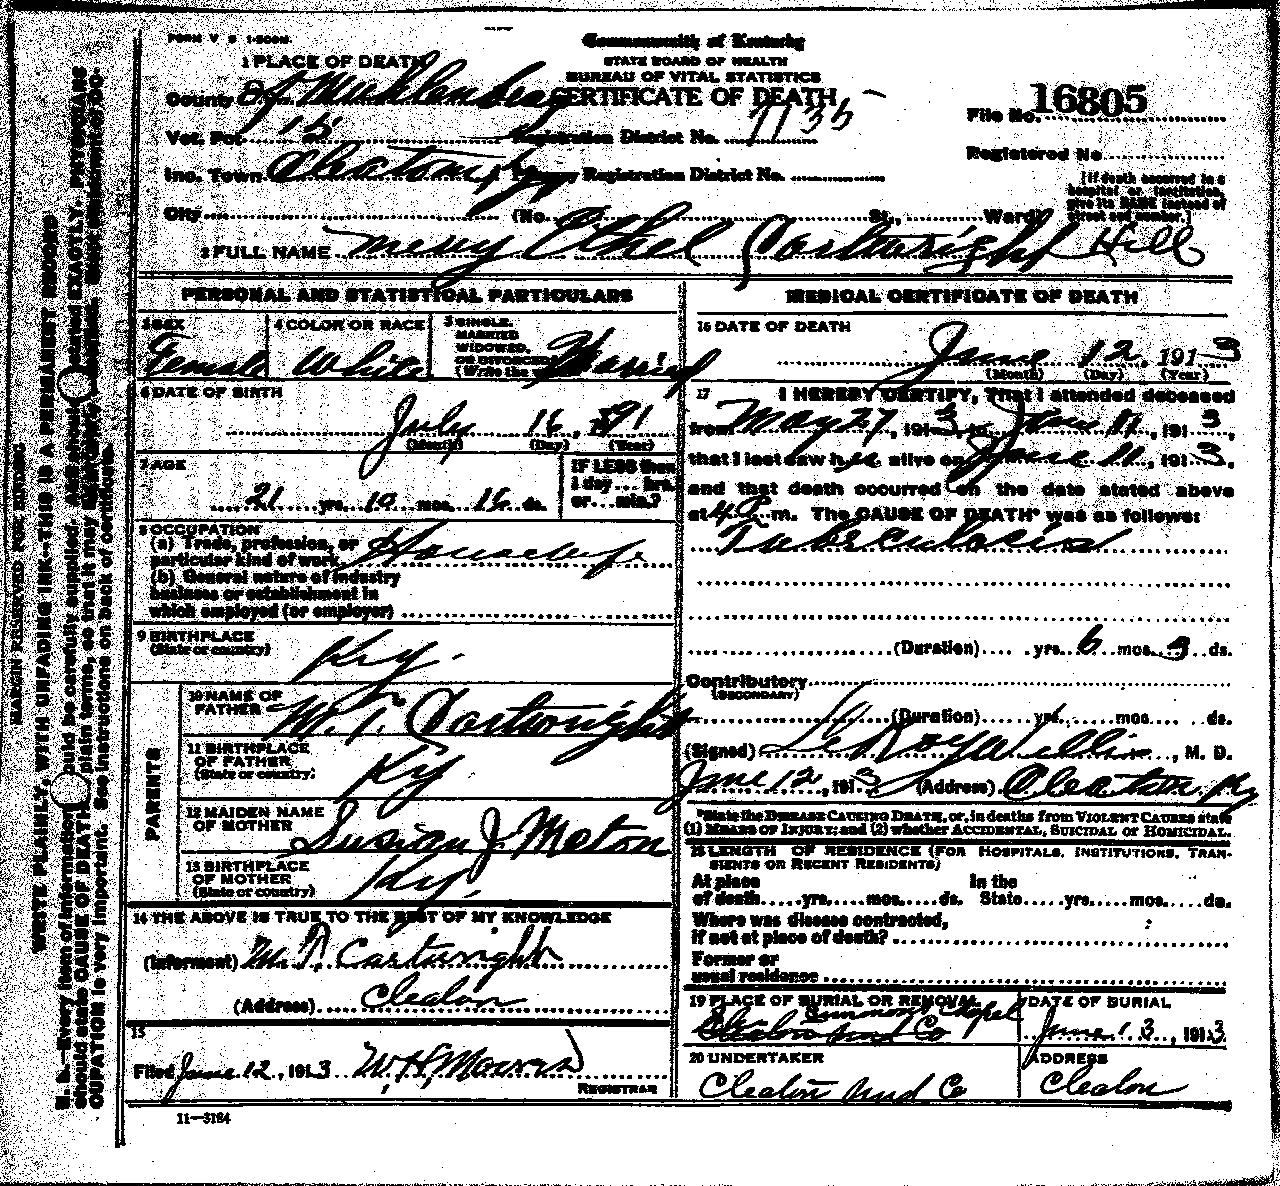 FORM V S 1-500M
Commonwealth of Kentucky
STATE BOARD OF HEALTH
BUREAU OF VITAL STATISTICS
CERTIFICATE OF DEATH
1 PLACE OF DEATH
County of Muhlenberg
File No. 16805
Vot. Pct 15 Registration District No. 1135
Registered No
Inc. Town Cleaton, Ky Primary Registration District No.
[If death occurred in a hospital or institution, give its NAME instead of street and number.]
City (No. St., Ward)
2 FULL NAME Mery Ethel (Cartwright) Hill
PERSONAL AND STATISTICAL PARTICULARS
3 SEX Female
4 COLOR OR RACE White
5 SINGLE, MARRIED WIDOWED, OR DIVORCED (Write the Married
6 DATE OF BIRTH
July 16, 1891
(Month) (Day) (Year)
7 AGE
21 yrs. 10 mos. 16 ds.
IF LESS than 1 day... hrs. or...min.?
8 OCCUPATION
(a) Trade, profession, or particular kind of work
(b) General nature of industry
business or establishment in
which employed (or employer)
9 BIRTHPLACE
(State or country) Ky.
PARENTS
10 NAME OF FATHER W. T. Cartwright
11 BIRTHPLACE OF FATHER (State or country) Ky
12 MAIDEN NAME OF MOTHER Susian J. Meton
13 BIRTHPLACE OF MOTHER (State or country) Ky.
14 THE ABOVE IS TRUE TO THE BEST OF MY KNOWLEDGE
(Informant) W. T. Cartwright
(Address) Cleaton
15
Filed June 12, 1913 W. H.
REGISTRAR
11—3184
MEDICAL CERTIFICATE OF DEATH
16 DATE OF DEATH
June 12, 1913
(Month) (Day) (Year)
17 I HEREBY CERTIFY, That I attended deceased
from May 27, 1913, to June 11, 1913,
that I last saw her alive on June 11, 1913,
and that death occurred on the date stated above
at 4 P m. The CAUSE OF DEATH* was as follows:
Tuberculosis
(Duration) yrs. 6 mos. 3 ds.
Contributory
(SECONDARY)
(Duration) yrs. mos. ds.
(Signed) Roy Willis, M. D.
June 12, 1913 (Address) Cleaton, Ky
*State the DISEASE CAUSING DEATH, or, in deaths from VIOLENT CAUSES state
(1) MEANS OF INJURY; and (2) whether ACCIDENTAL, SUICIDAL or HOMICIDAL.
18 LENGTH OF RESIDENCE (FOR HOSPITALS, INSTITUTIONS, TRANSIENTS OR RECENT RESIDENTS)
At place of death yrs. mos. ds. In the State yrs. mos. ds.
Where was disease contracted,
if not at place of death?
Former or
usual residence
19 PLACE OF BURIAL OR REMOVAL
Chapel
DATE OF BURIAL
June 13, 1913
20 UNDERTAKER
Cleaton Co
ADDRESS
Cleaton
MARGIN RESERVED FOR BINDING
WRITE PLAINLY, WITH UNFADING INK—THIS IS A PERMANENT RECORD
N. B.—Every item of information should be carefully supplied. AGE should be stated EXACTLY. PHYSICIANS
should state CAUSE OF DEATH in plain terms, so that it may be properly classified. Exact statement of OC-
CUPATION is very important. See instructions on back of certificate.